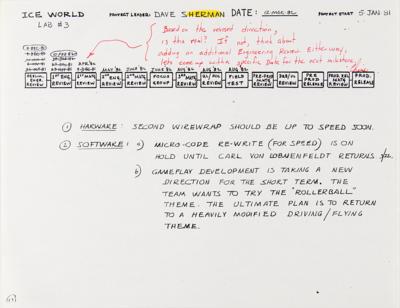 ICE WORLD
PROJECT LEADER: DAVE SHERMAN DATE: 12-MAR-82 PROJECT START 5 JAN 81
LAB #3
Based on the revised direction,
is this real? If not, think about
adding an additional Engineering Review. Either way,
let's come up with a specific date for the next milestone.
MAY '82 JUNE '82 JUNE '82 AUG '82 AUG '82 AUG '82
1ST ENG. REVIEW
1ST MKTG REVIEW
2ND ENG. REVIEW
2ND MKTG REVIEW
FOCUS GROUP
3RD MKTG REVIEW
FIELD TEST
PRE-PROD MKTG REVIEW
PRE PROD REVIEW
PROD. REL MKTG REVIEW
PROD. RELEASE
① HARWARE: SECOND WIREWRAP SHOULD BE UP TO SPEED SOON.
② SOFTWARE: a) MICRO-CODE RE-WRITE (FOR SPEED) IS ON
HOLD UNTIL CARL VON LOBHENFELDT RETURNS
b) GAMEPLAY DEVELOPMENT IS TAKING A NEW
DIRECTION FOR THE SHORT TERM. THE
TEAM WANTS TO TRY THE "ROLLERBALL"
THEME. THE ULTIMATE PLAN IS TO RETURN
TO A HEAVILY MODIFIED DRIVING/FLYING
THEME.